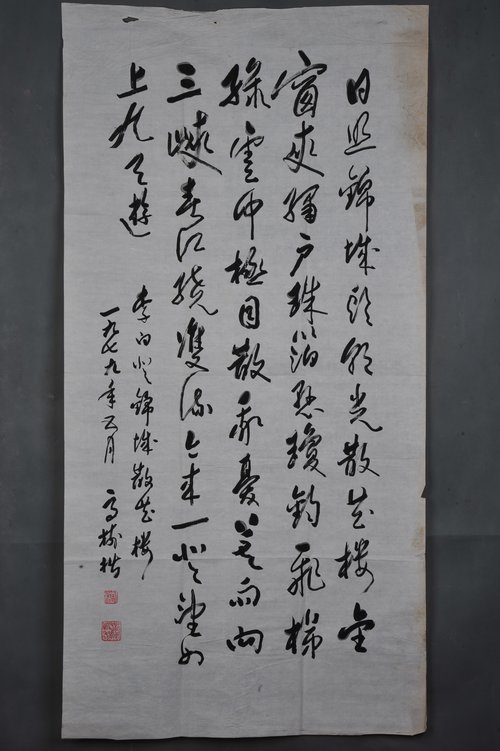 日照錦城頭朝光散花楼金
窗夾繡户珠箔懸瓊鈎飛梯
綠雲中極目散我憂暮雨向
三峽春江繞雙流今来一登望如
上九天遊
李白登錦城散花楼
一九七九年五月 高樹